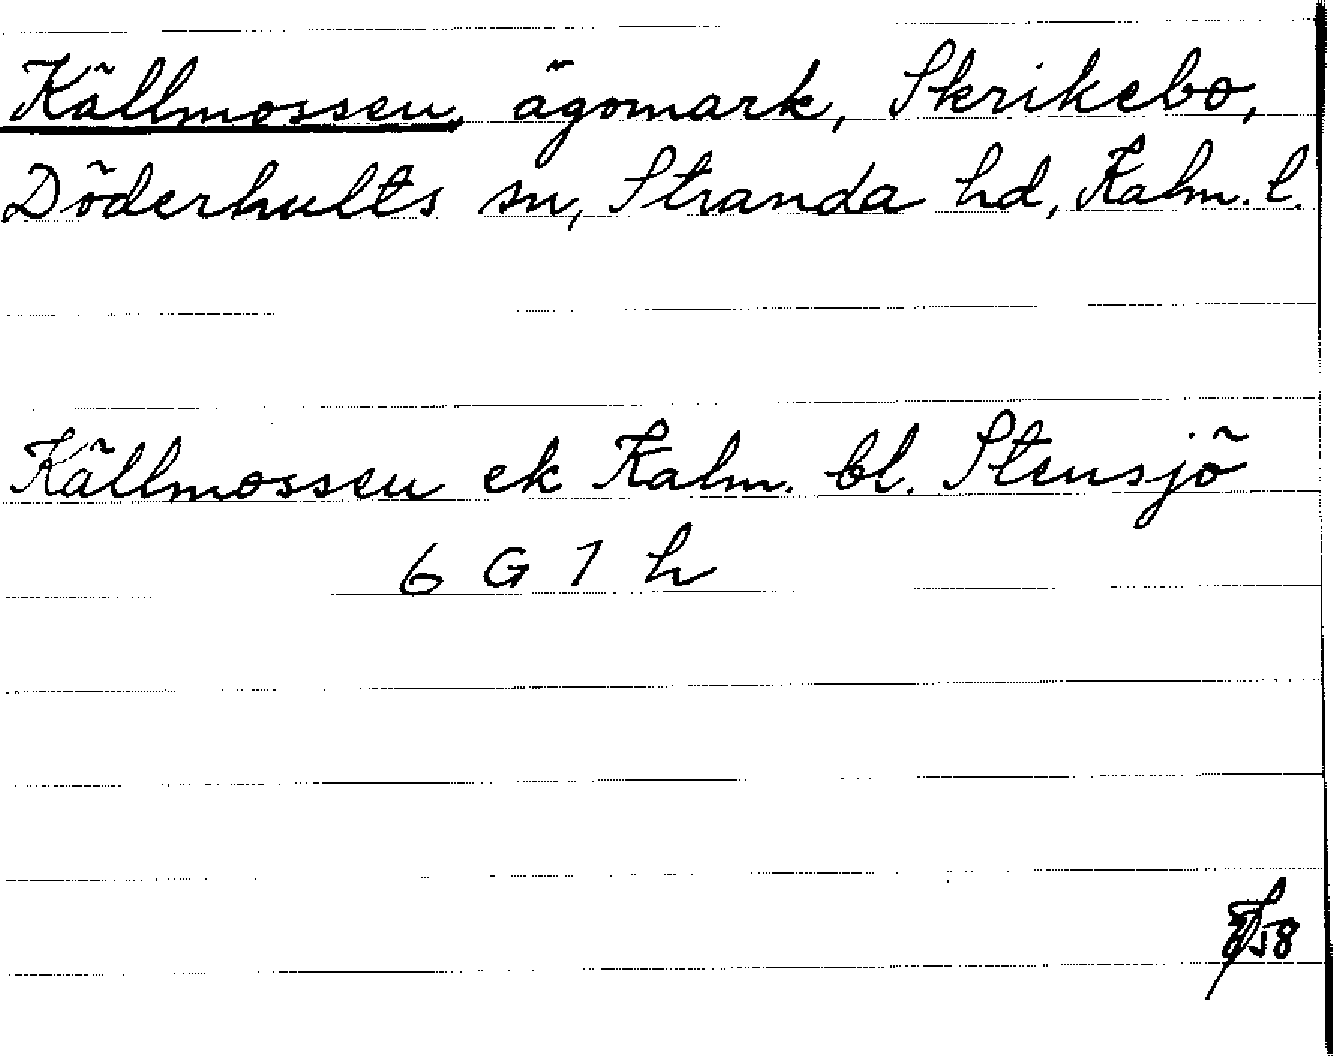 Källmossen, ägomark, Skrikebo,
Döderhults sn, Stranda hd, Kalm. l.
Källmossen ek Kalm. bl. Stensjö
6 G 7 h
58